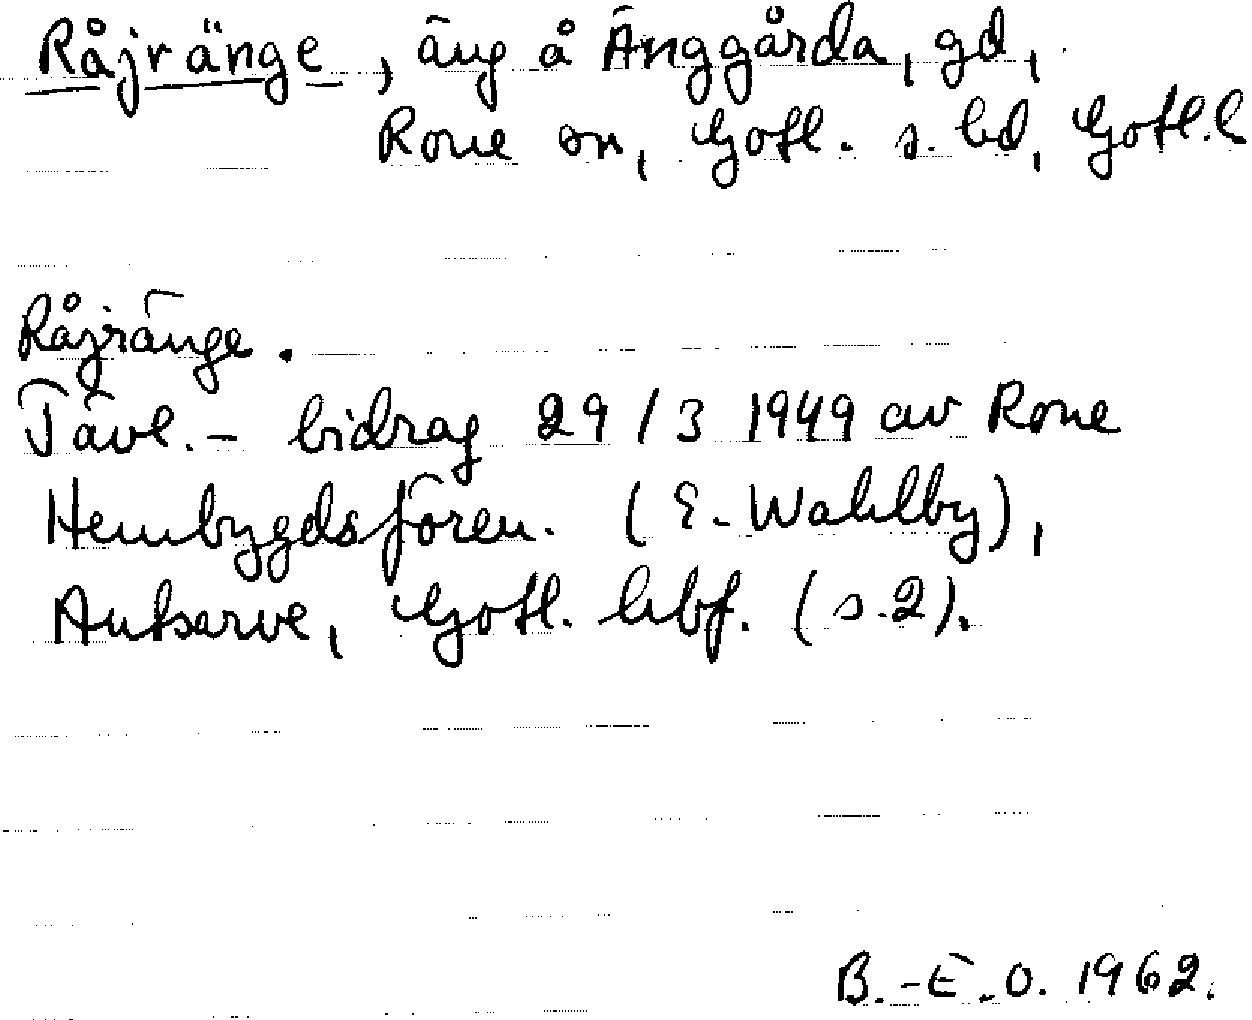 Råjränge, äng å Änggårda, gd,
Rone sn, Gotl. s. hd, Gotl. l
Råjränge.
Tävl.- bidrag 29/3 1949 av Rone
Hembygdsfören. (E. Wahlby),
Autsarve, Gotl. hbf. (s.2).
B.-E.O. 1962.